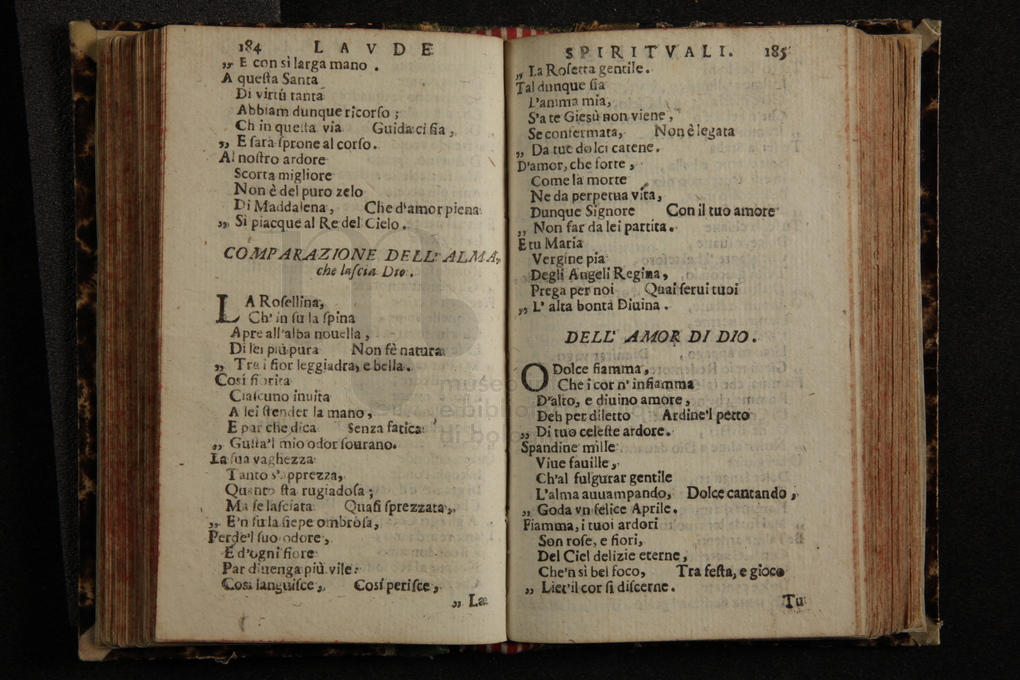 184 LAVDE
„ E con sì larga mano.
A questa Santa
Di virtù tanta
Abbiam dunque ricorso;
Ch in questa via Guida ci sia,
„ E sarà sprone al corso.
Al nostro ardore
Scorta migliore
Non è del puro zelo
Di Maddalena, Che d'amor piena
„ Si piacque al Re del Cielo.
COMPARAZIONE DELL' ALMA,
che lascia Dio.
LA Rosellina,
Ch' in su la spina
Apre all'alba nouella,
Di lei più pura Non fè natura
„ Tra i fior leggiadra, e bella.
Così fiorita
Ciascuno inuita
A lei stender la mano,
E par che dica Senza fatica
„ Gusta'l mio odor sourano.
La sua vaghezza
Tanto s'apprezza,
Quanto sta rugiadosa;
Ma se lasciata Quasi sprezzata,
„ E'n su la siepe ombrosa,
Perde'l suo odore,
E d'ogni fiore
Par diuenga più vile:
Così languisce, Così perisce,
„ La
SPIRITVALI. 185
„ La Rosetta gentile.
Tal dunque sia
L'anima mia,
S'a te Giesù non viene,
Se confermata, Non è legata
„ Da tue dolci catene.
D'amor, che forte,
Come la morte
Ne da perpetua vita,
Dunque Signore Con il tuo amore
„ Non far da lei partita.
E tu Maria
Vergine pia
Degli Angeli Regina,
Prega per noi Quai serui tuoi
„ L' alta bontà Diuina.
DELL' AMOR DI DIO.
O Dolce fiamma,
Che i cor n' infiamma
D'alto, e diuino amore,
Deh per diletto Ardine'l petto
„ Di tuo celeste ardore.
Spandine mille
Viue fauille,
Ch'al fulgurar gentile
L'alma auuampando, Dolce cantando,
„ Goda vn felice Aprile.
Fiamma, i tuoi ardori
Son rose, e fiori,
Del Ciel delizie eterne,
Che'n sì bel foco, Tra festa, e gioco
„ Liet'il cor si discerne.
Tu